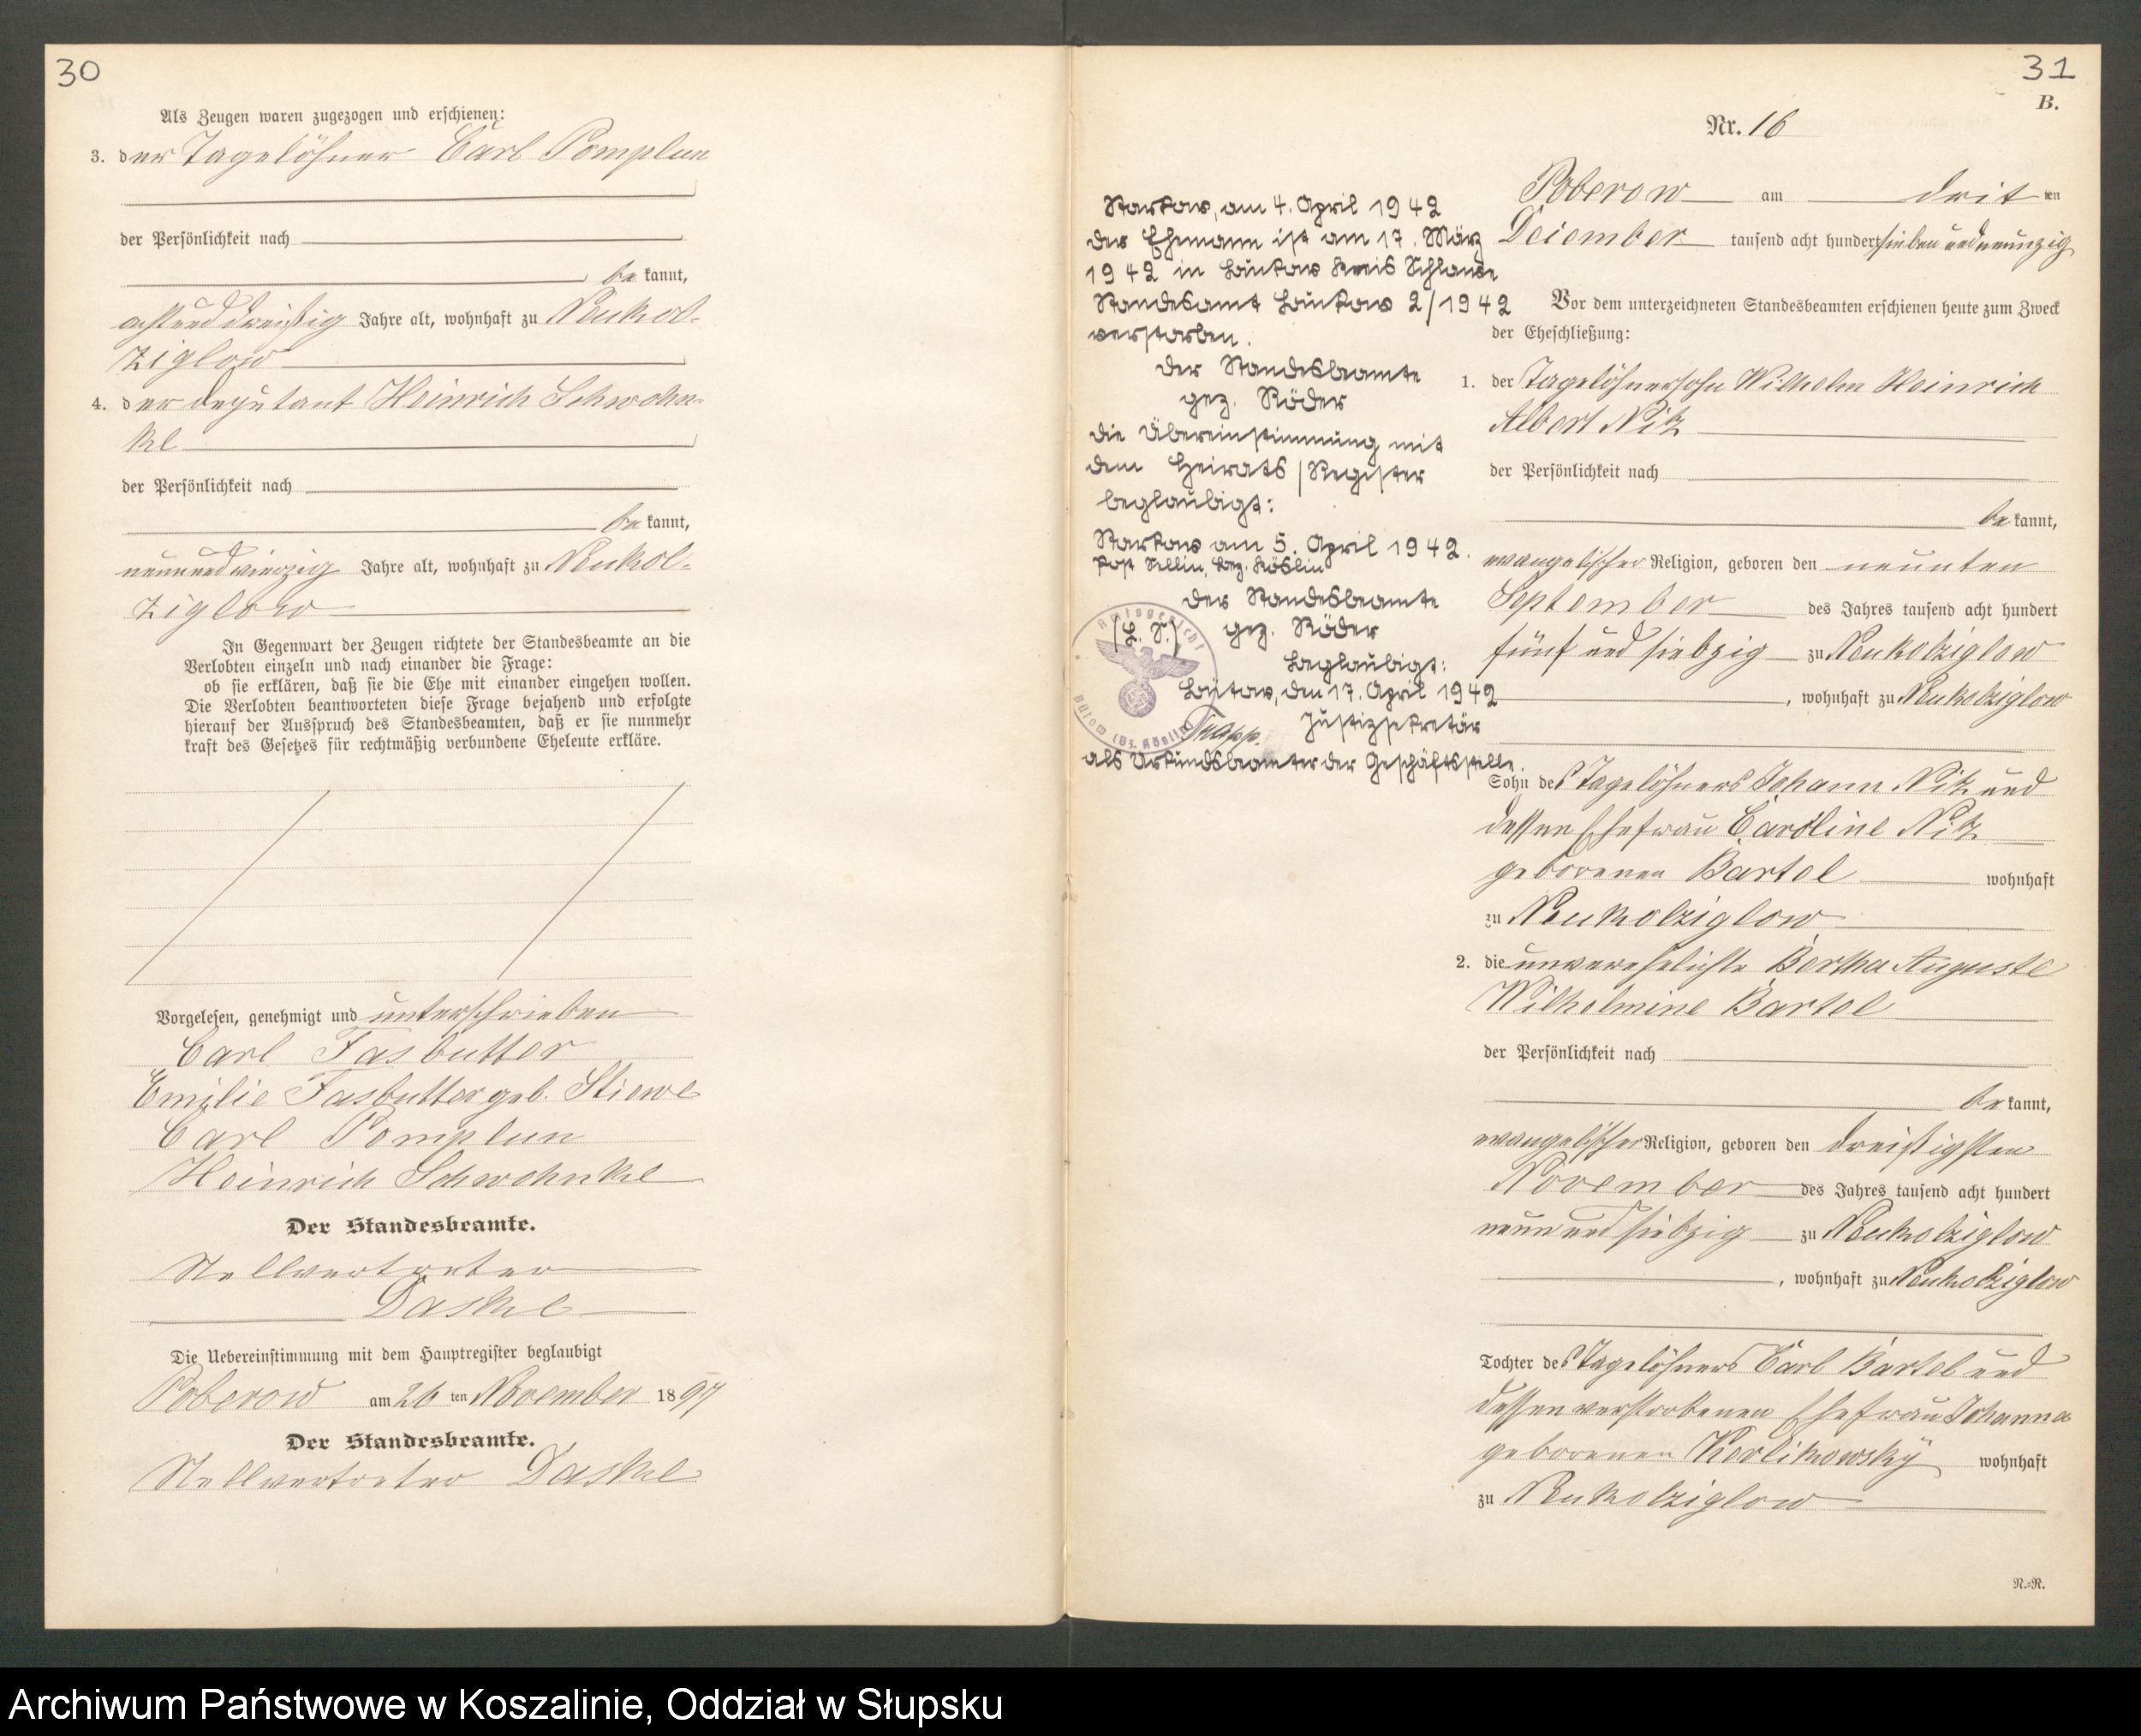 30
Als Zeugen waren zugezogen und erschienen:
3. der Tagelöhner Carl Pomplun
der Persönlichkeit nach
be kannt,
achtunddreißig Jahre alt, wohnhaft zu Neukol-
ziglow
4. der Deputant Heinrich Schwohn-
ke
der Persönlichkeit nach
be kannt,
neunundvierzig Jahre alt, wohnhaft zu Neukol-
ziglow
In Gegenwart der Zeugen richtete der Standesbeamte an die
Verlobten einzeln und nach einander die Frage:
ob sie erklären, daß sie die Ehe mit einander eingehen wollen.
Die Verlobten beantworteten diese Frage bejahend und erfolgte
hierauf der Ausspruch des Standesbeamten, daß er sie nunmehr
kraft des Gesetzes für rechtmäßig verbundene Eheleute erkläre.
Vorgelesen, genehmigt und unterschrieben
Carl Fasbutter
Emilie Fasbutter geb. Stiewe
Carl Pomplun
Heinrich Schwohnke
Der Standesbeamte.
Stellvertreter
Daske
Die Uebereinstimmung mit dem Hauptregister beglaubigt
Poberow am 26 ten November 1897
Der Standesbeamte.
Stellvertreter Daske
31
B.
Nr. 16
Poberow am drit ten
Dezember tausend acht hundert sieben und neunzig
Vor dem unterzeichneten Standesbeamten erschienen heute zum Zweck
der Eheschließung:
1. der Tagelöhnersohn Wilhelm Heinrich
Albert Nitz
der Persönlichkeit nach
be kannt,
evangelischer Religion, geboren den neunten
September des Jahres tausend acht hundert
fünf und siebzig zu Neukolziglow
, wohnhaft zu Neukolziglow
Sohn des Tagelöhners Johann Nitz und
dessen Ehefrau Caroline Nitz
geborenen Bartel wohnhaft
zu Neukolziglow
2. die unverehelichte Bertha Auguste
Wilhelmine Bartel
der Persönlichkeit nach
be kannt,
evangelischer Religion, geboren den dreißigsten
November des Jahres tausend acht hundert
neun und siebzig zu Neukolziglow
, wohnhaft zu Neukolziglow
Tochter des Tagelöhners Carl Bartel und
dessen verstorbenen Ehefrau Johanna
geborenen Korlikowsky wohnhaft
zu Neukolziglow
N.=N.
Startow, am 4. April 1942
Der Ehemann ist am 17. März
1942 in Lüntow Kreis Schlawe
Standesamt Lüntow 2/1942
verstorben.
Der Standesbeamte
gez. Röder
Die Übereinstimmung mit
dem Heirats/Register
beglaubigt:
Startow am 5. April 1942.
Post Sellin, Bez. Köslin
Der Standesbeamte
(L. S.) gez. Röder
Beglaubigt:
Bütow, den 17. April 1942
Justizsekretär
als Urkundsbeamter der Geschäftsstelle.
Amtsgericht
Bütow (Bz. Köslin)
Archiwum Państwowe w Koszalinie, Oddział w Słupsku